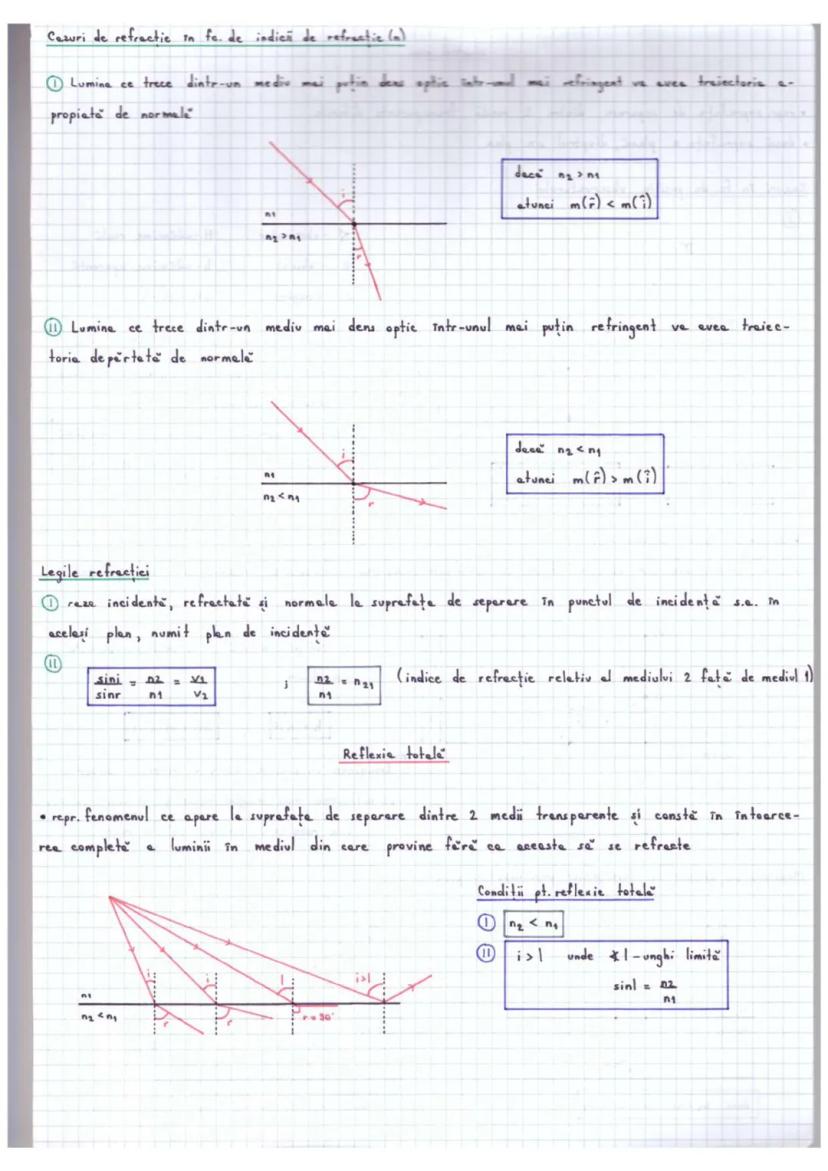 Cazuri de refractie în fc. de indicii de refractie (n)
I Lumina ce trece dintr-un mediu mai puțin dens optic într-unul mai refringent va avea traiectoria a-
propiată de normală
i
n1
n2 > n1
r
dacă n2 > n1
atunci m(r̂) < m(î)
II Lumina ce trece dintr-un mediu mai dens optic într-unul mai puțin refringent va avea traiec-
toria depărtată de normală
i
n1
n2 < n1
r
dacă n2 < n1
atunci m(r̂) > m(î)
Legile refracției
I raza incidentă, refractată și normala la suprafața de separare în punctul de incidență s.a. în
același plan, numit plan de incidență
II
sini/sinr = n2/n1 = v1/v2 ; n2/n1 = n21 (indice de refracție relativ al mediului 2 față de mediul 1)
Reflexia totală
• repr. fenomenul ce apare la suprafața de separare dintre 2 medii transparente și constă în întoarce-
rea completă a luminii în mediul din care provine fără ca aceasta să se refracte
Condiții pt. reflexie totală
I n2 < n1
II i > l unde ∢ l - unghi limită
sinl = n2/n1
i i l i>l
n1
n2 < n1
r r r = 90°